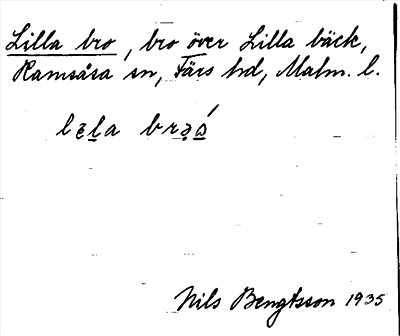 Lilla bro, bro över Lilla bäck,
Ramsåsa sn, Färs hd, Malm. l.
Nils Bengtsson 1935